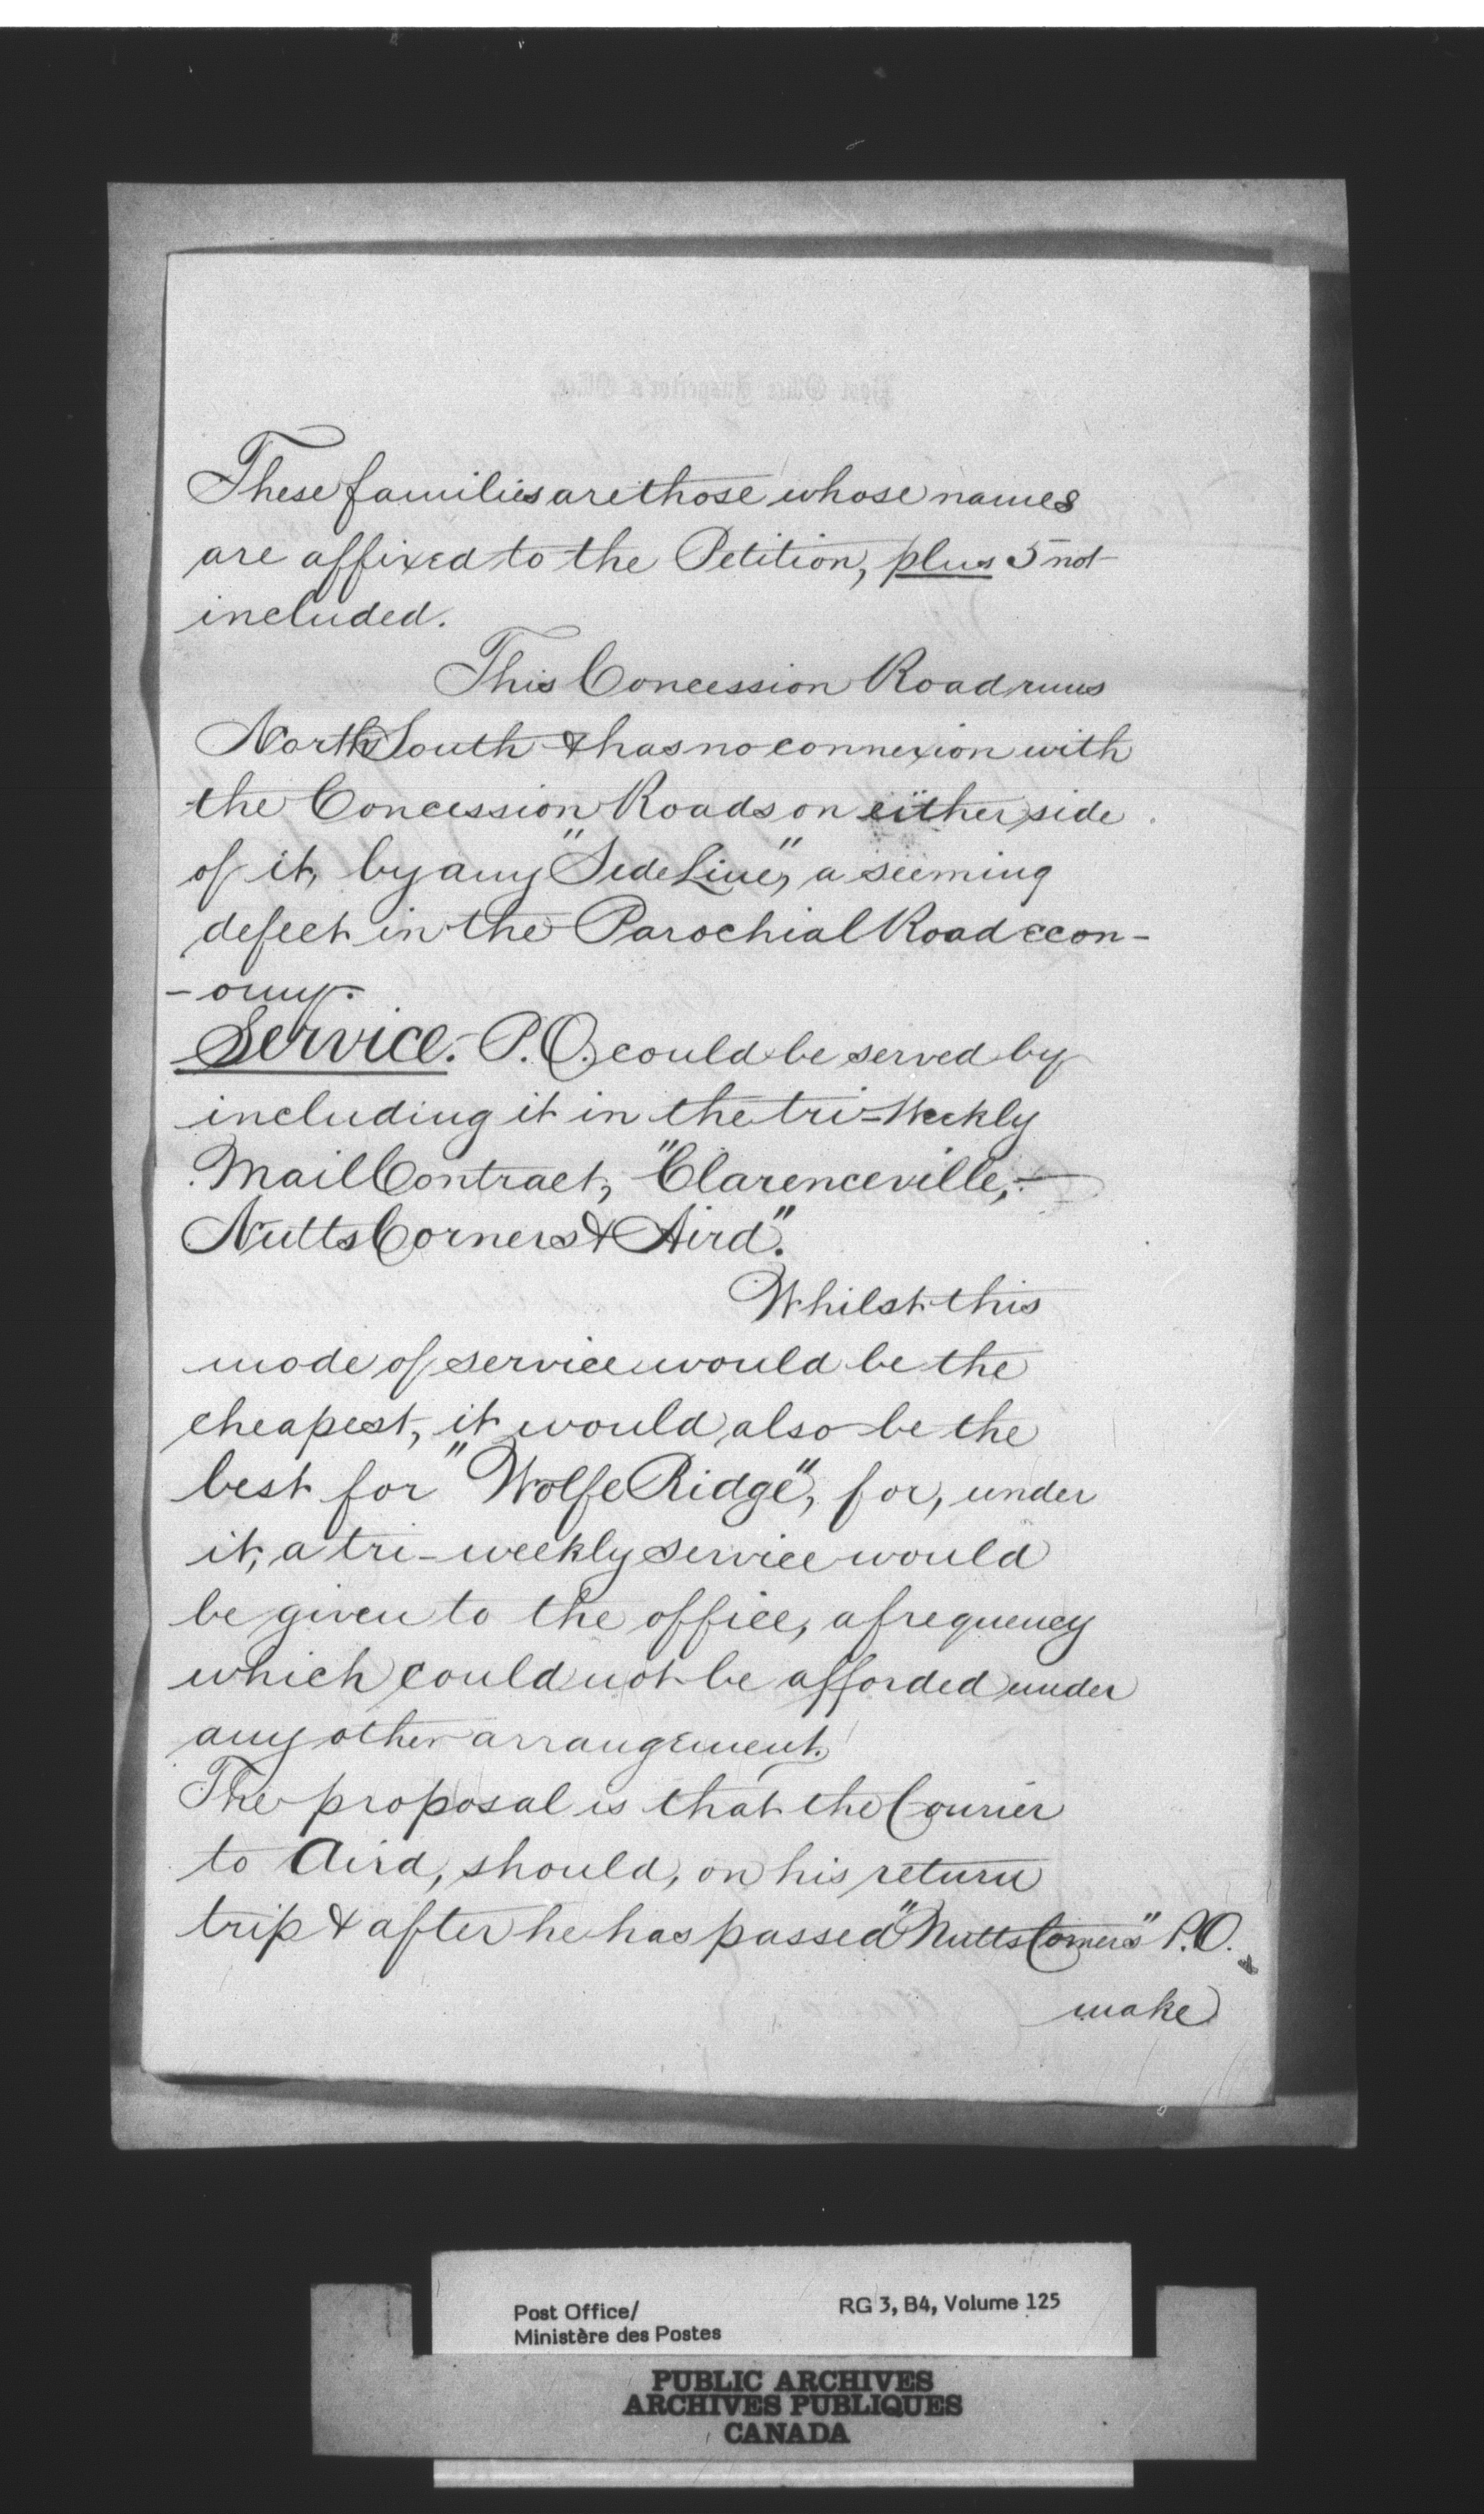 These families are those whose names
are affixed to the Petition, plus 5 not
included.
This Concession Road runs
North & South & has no connexion with
the Concession Roads on either side
of it, by any "Side Line", a seeming
defect in the Parochial Road econ-
-omy.
Service. - P.O. could be served by
including it in the tri-Weekly
Mail Contract, "Clarenceville, -
Nutts Corners & Aird".
Whilst this
mode of service would be the
cheapest, it would also be the
best for "Wolfe Ridge", for, under
it, a tri-weekly service would
be given to the office, a frequency
which could not be afforded under
any other arrangement.
The proposal is that the Courier
to Aird, should, on his return
trip & after he has passed "Nutts Corners" P.O.
make
Post Office/
Ministère des Postes
RG 3, B4, Volume 125
PUBLIC ARCHIVES
ARCHIVES PUBLIQUES
CANADA